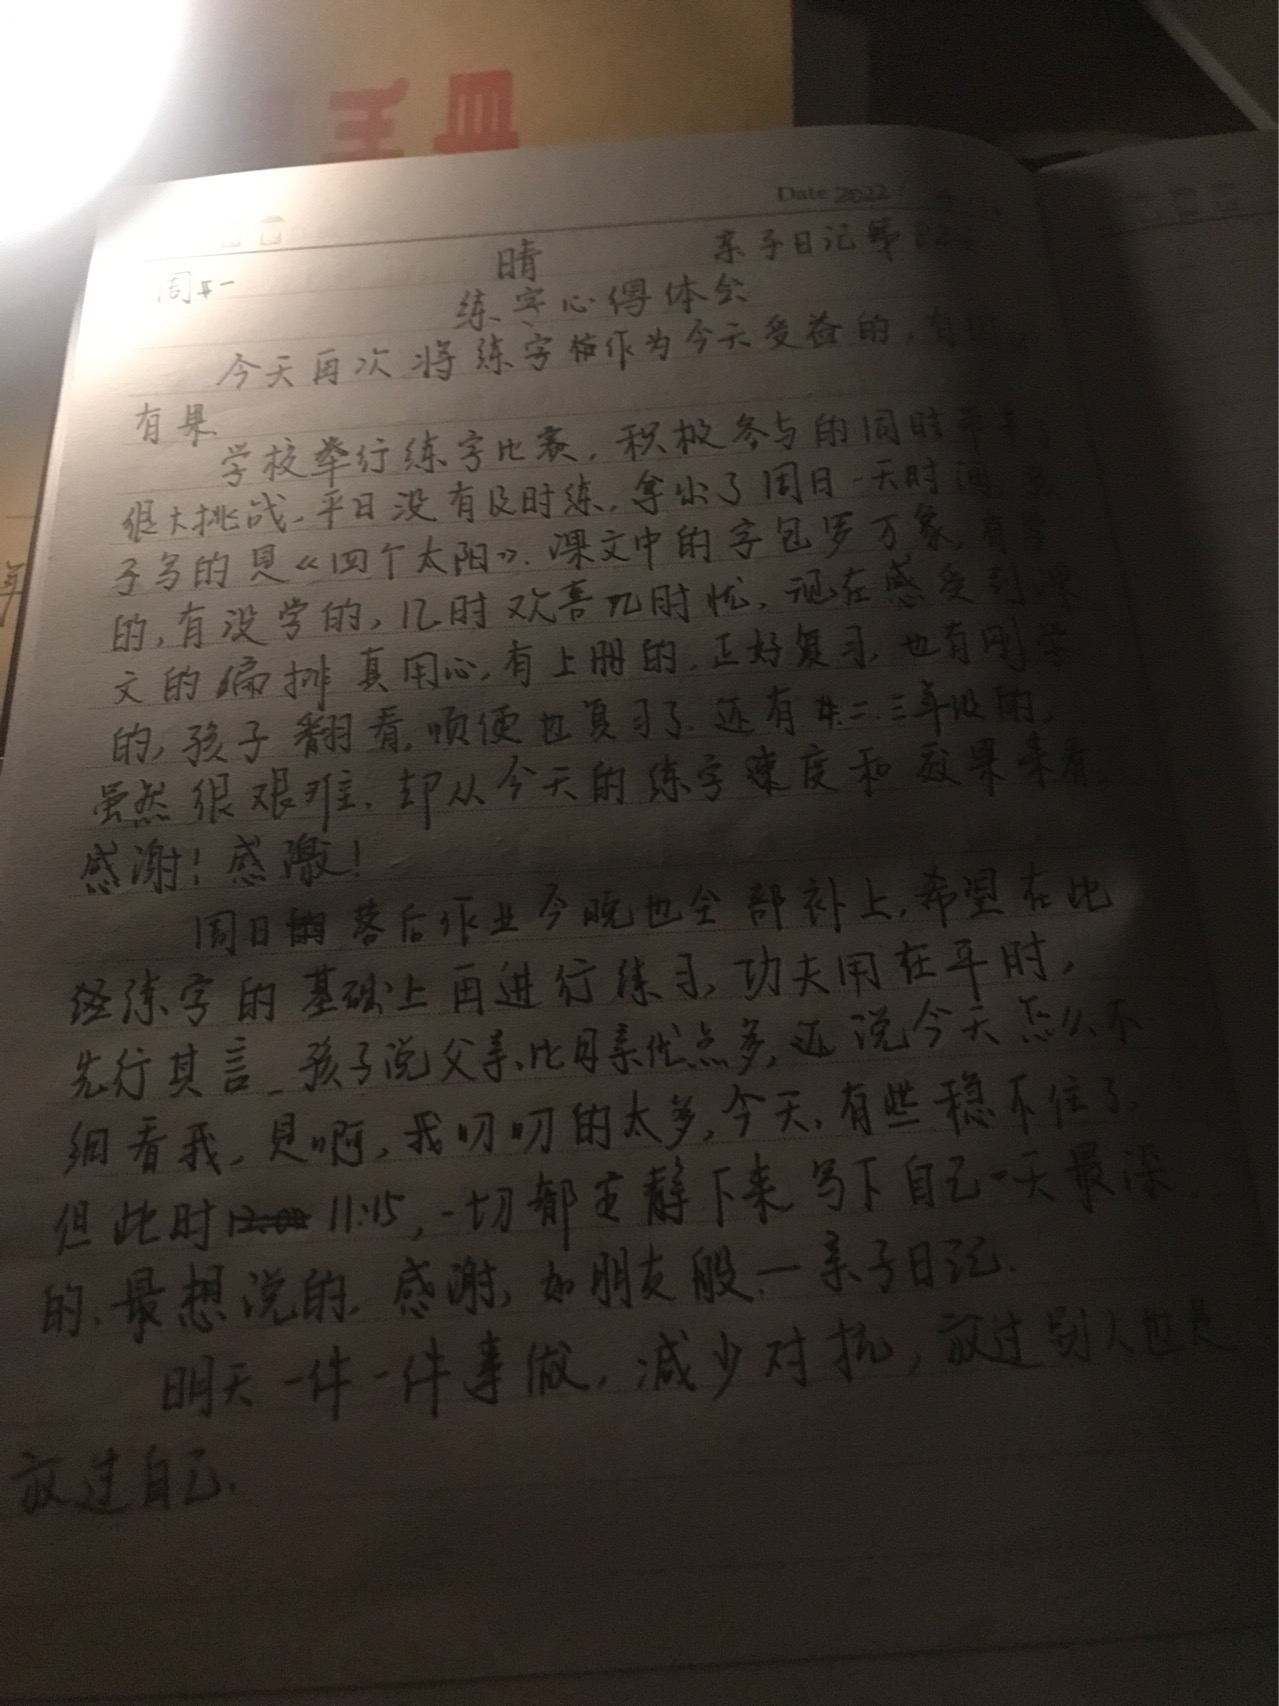 手册
Date 2022
周一 晴 亲子日记第
练字心得体会
今天再次将练字作为今天受益的，有
有果
学校举行练字比赛，积极参与的同时带
很大挑战，平日没有及时练，拿出了周日一天时间，
子多的是《四个太阳》.课文中的字包罗万象，有学
的，有没学的，几时欢喜几时忧，现在感受到课
文的编排真用心，有上册的，正好复习，也有刚学
的，孩子翻看，顺便也复习了.还有二.三年级的，
虽然很艰难，却从今天的练字速度和效果来看，
感谢！感激！
周日落后作业今晚也全部补上，希望在此
经练字的基础上再进行练习，功夫用在平时，
先行其言_孩子说父亲比母亲优点多，还说今天怎么不
细看我，是啊，我叨叨的太多，今天，有些稳不住了，
但此时11:15，一切都定静下来，写下自己一天最深
的，最想说的，感谢，如朋友般一亲子日记.
明天一件一件事做，减少对抗，放过别人也是
放过自己.